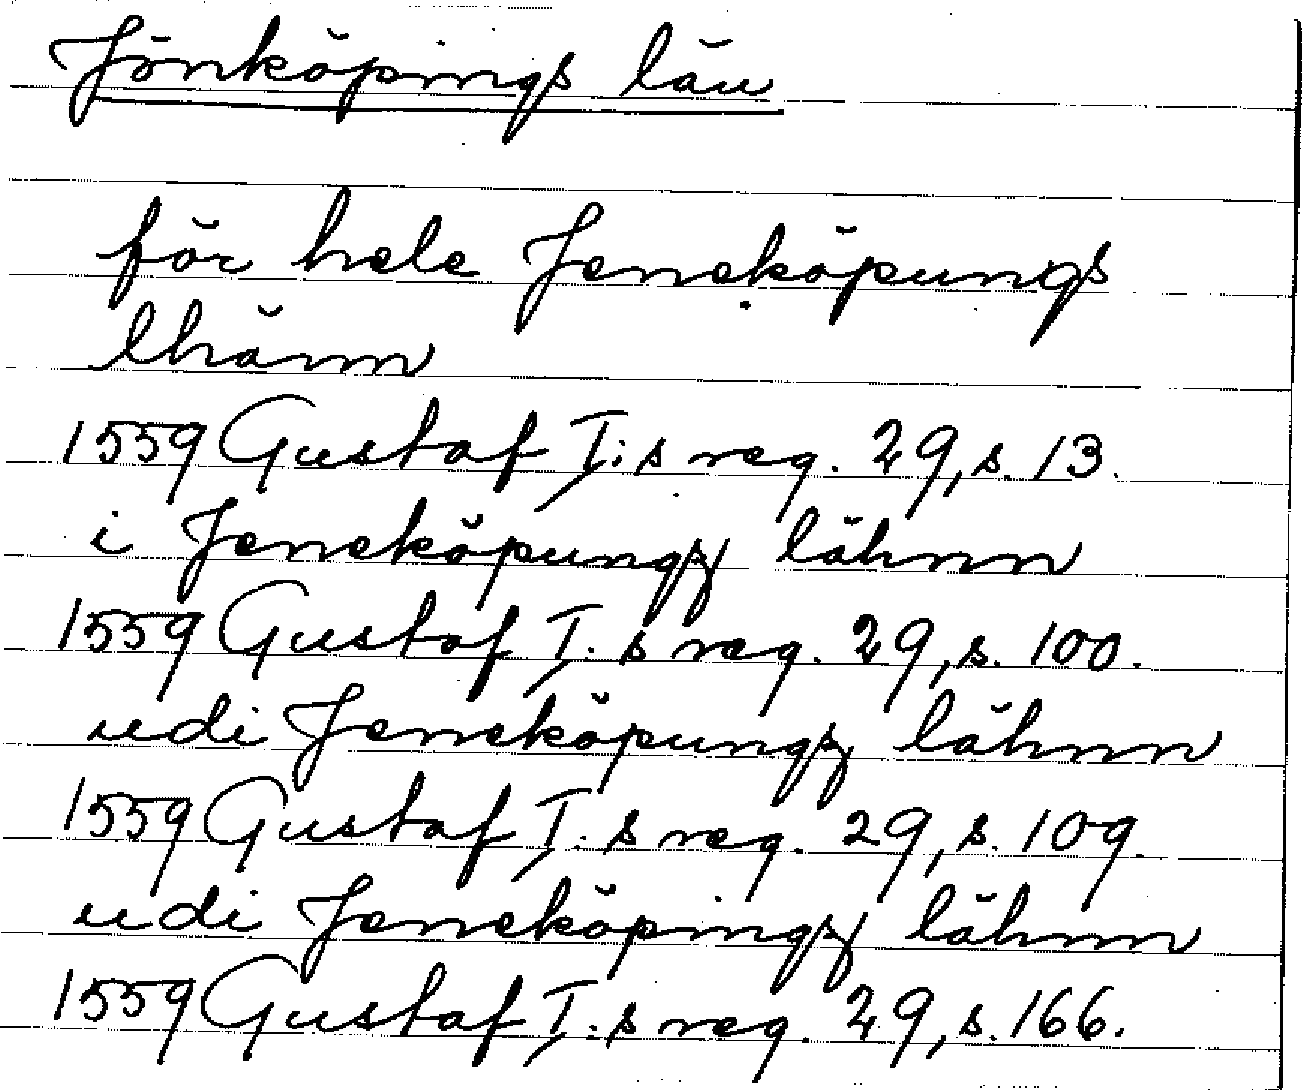 Jönköpings län
för hele Jeneköpungs
lhänn
1559 Gustaf I:s reg. 29, s. 13.
i Jeneköpungz lähnn
1559 Gustaf I:s reg. 29, s. 100.
udi Jeneköpungz lähnn
1559 Gustaf I:s reg. 29, s. 109.
udi Jeneköpingz lähnn
1559 Gustaf I:s reg. 29, s. 166.